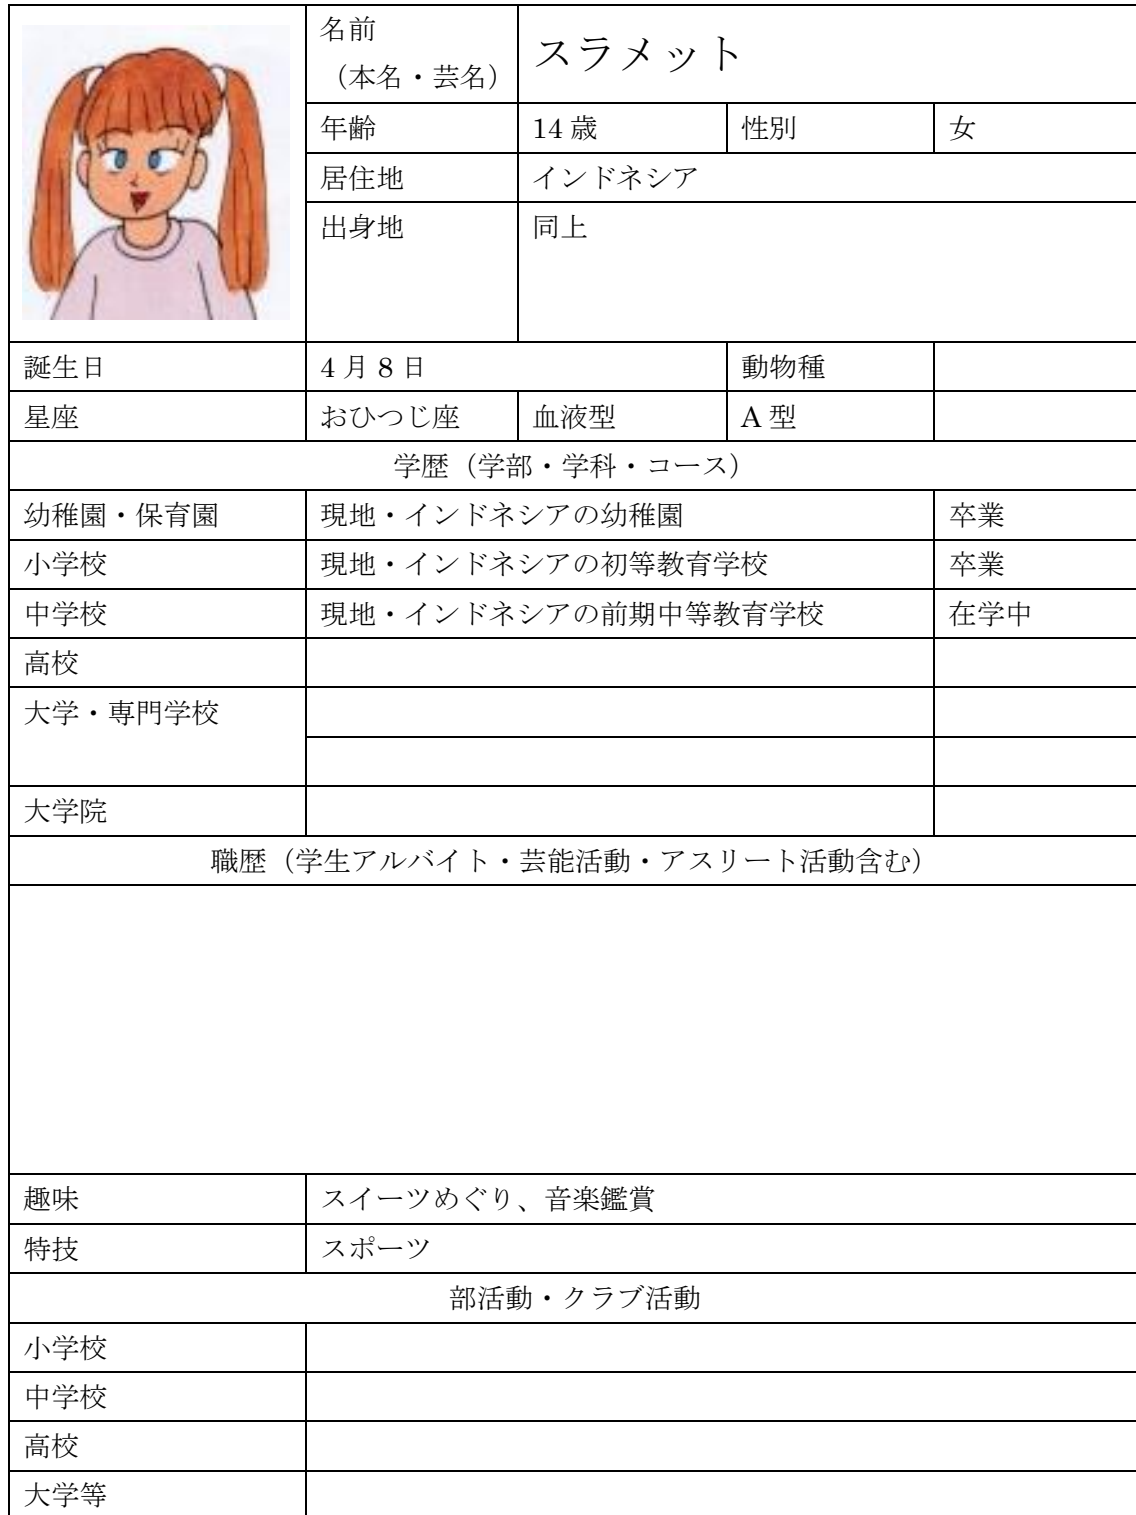 名前
（本名・芸名）
スラメット
年齢 14 歳 性別 女
居住地 インドネシア
出身地 同上
誕生日 4 月 8 日 動物種
星座 おひつじ座 血液型 A 型
学歴（学部・学科・コース）
幼稚園・保育園 現地・インドネシアの幼稚園 卒業
小学校 現地・インドネシアの初等教育学校 卒業
中学校 現地・インドネシアの前期中等教育学校 在学中
高校
大学・専門学校
大学院
職歴（学生アルバイト・芸能活動・アスリート活動含む）
趣味 スイーツめぐり、音楽鑑賞
特技 スポーツ
部活動・クラブ活動
小学校
中学校
高校
大学等